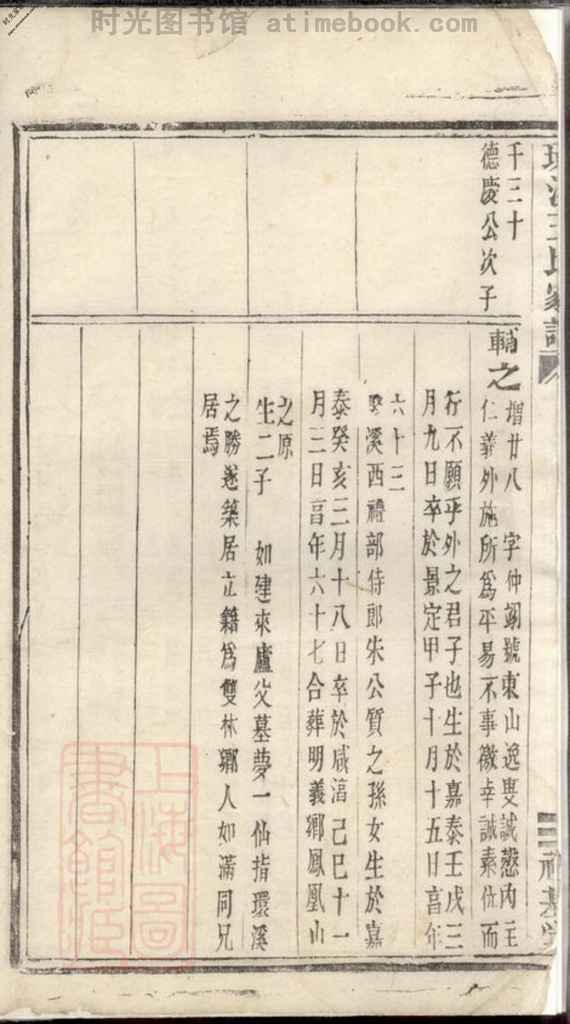 时光图书馆 atimebook.com
王氏家譜
千三十
德慶公次子
輔之
增廿八 字仲翊號東山逸叟誠慤內主
仁義外施所為平易不事徼幸誠素位而
行不願乎外之君子也生於嘉泰壬戌三
月九日卒於景定甲子十月十五日亯年
六十三
娶溪西禮部侍郎朱公質之孫女生於嘉
泰癸亥三月十八日卒於咸湻己巳十一
月三日亯年六十七合葬明義鄉鳳凰山
之原
生二子 如建來廬父墓夢一仙指環溪
之勝遂築居立籍為雙林鄉人如滿同兄
居焉
上海圖
書館